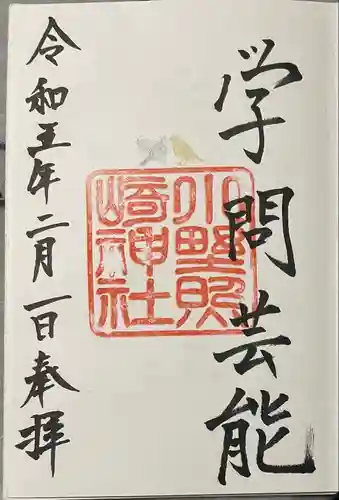 学問芸能
小野照
崎神社
令和五年二月一日奉拝